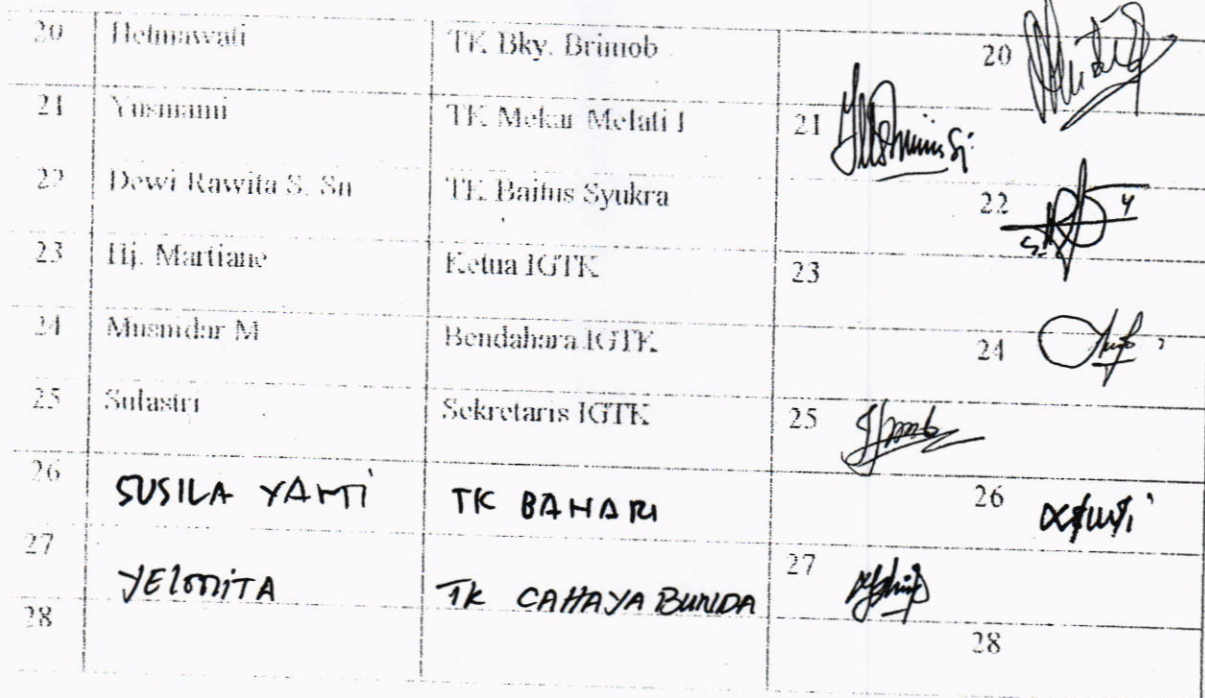 20 Helmawati TK Bky. Brimob 20
21 Yusmami TK Mekar Melati I 21
22 Dewi Rawita S. Sn TK Baitus Syukra 22
23 Hj. Martiane Ketua IGTK 23
24 Musnidar M Bendahara IGTK 24
25 Sulastri Sekretaris IGTK 25
26 SUSILA YANTI TK BAHARI 26
27 YELMITA TK CAHAYA BUNDA 27
28 28